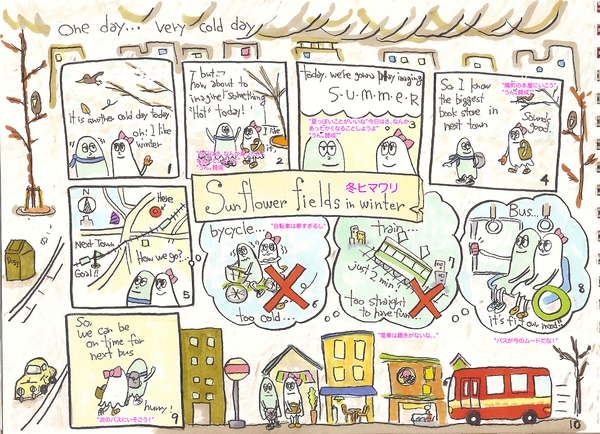 One day... Very cold day
It is another cold day today.
oh! I like winter
1
? but...?
how about to
imagine something
"Hot" today!
I like
it!
2
Today, we're gonna play imaging
S・U・M・M・E・R
"夏っぽいことがいいな"今日はさ、なんか
あったかくなることしようよ"
"うん。賛成"
3
So, I know
the biggest
book store in
next town
"隣町の本屋にいこう"
"うん。賛成"
Sounds
good.
4
Sunflower fields in winter
冬ヒマワリ
N
Here
Next Town
Goal!!
How we go?
5
bycycle...
"自転車は寒すぎるし"
too cold...
6
train...
just 2 min
too straight
to have fun
7
"電車は趣きがないな、、"
Bus...
it's fit our mood!
8
"バスが今のムードだな!"
So,
we can be
on time for
next bus
hurry!
"次のバスにいそごう!"
9
10